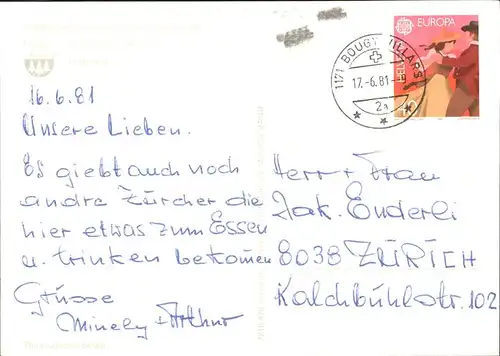 16.6.81
Unsere Lieben.
Es giebt auch noch
andre Zürcher die
hier etwas zum Essen
u. trinken bekommen
Grüsse
Minely + Arthur
EUROPA
1171 BOUGY-VILLARS
17.-6.81.-9
2a
40
Herr + Frau
Jak. Enderli
8038 ZÜRICH
Kalchbühlstr. 102